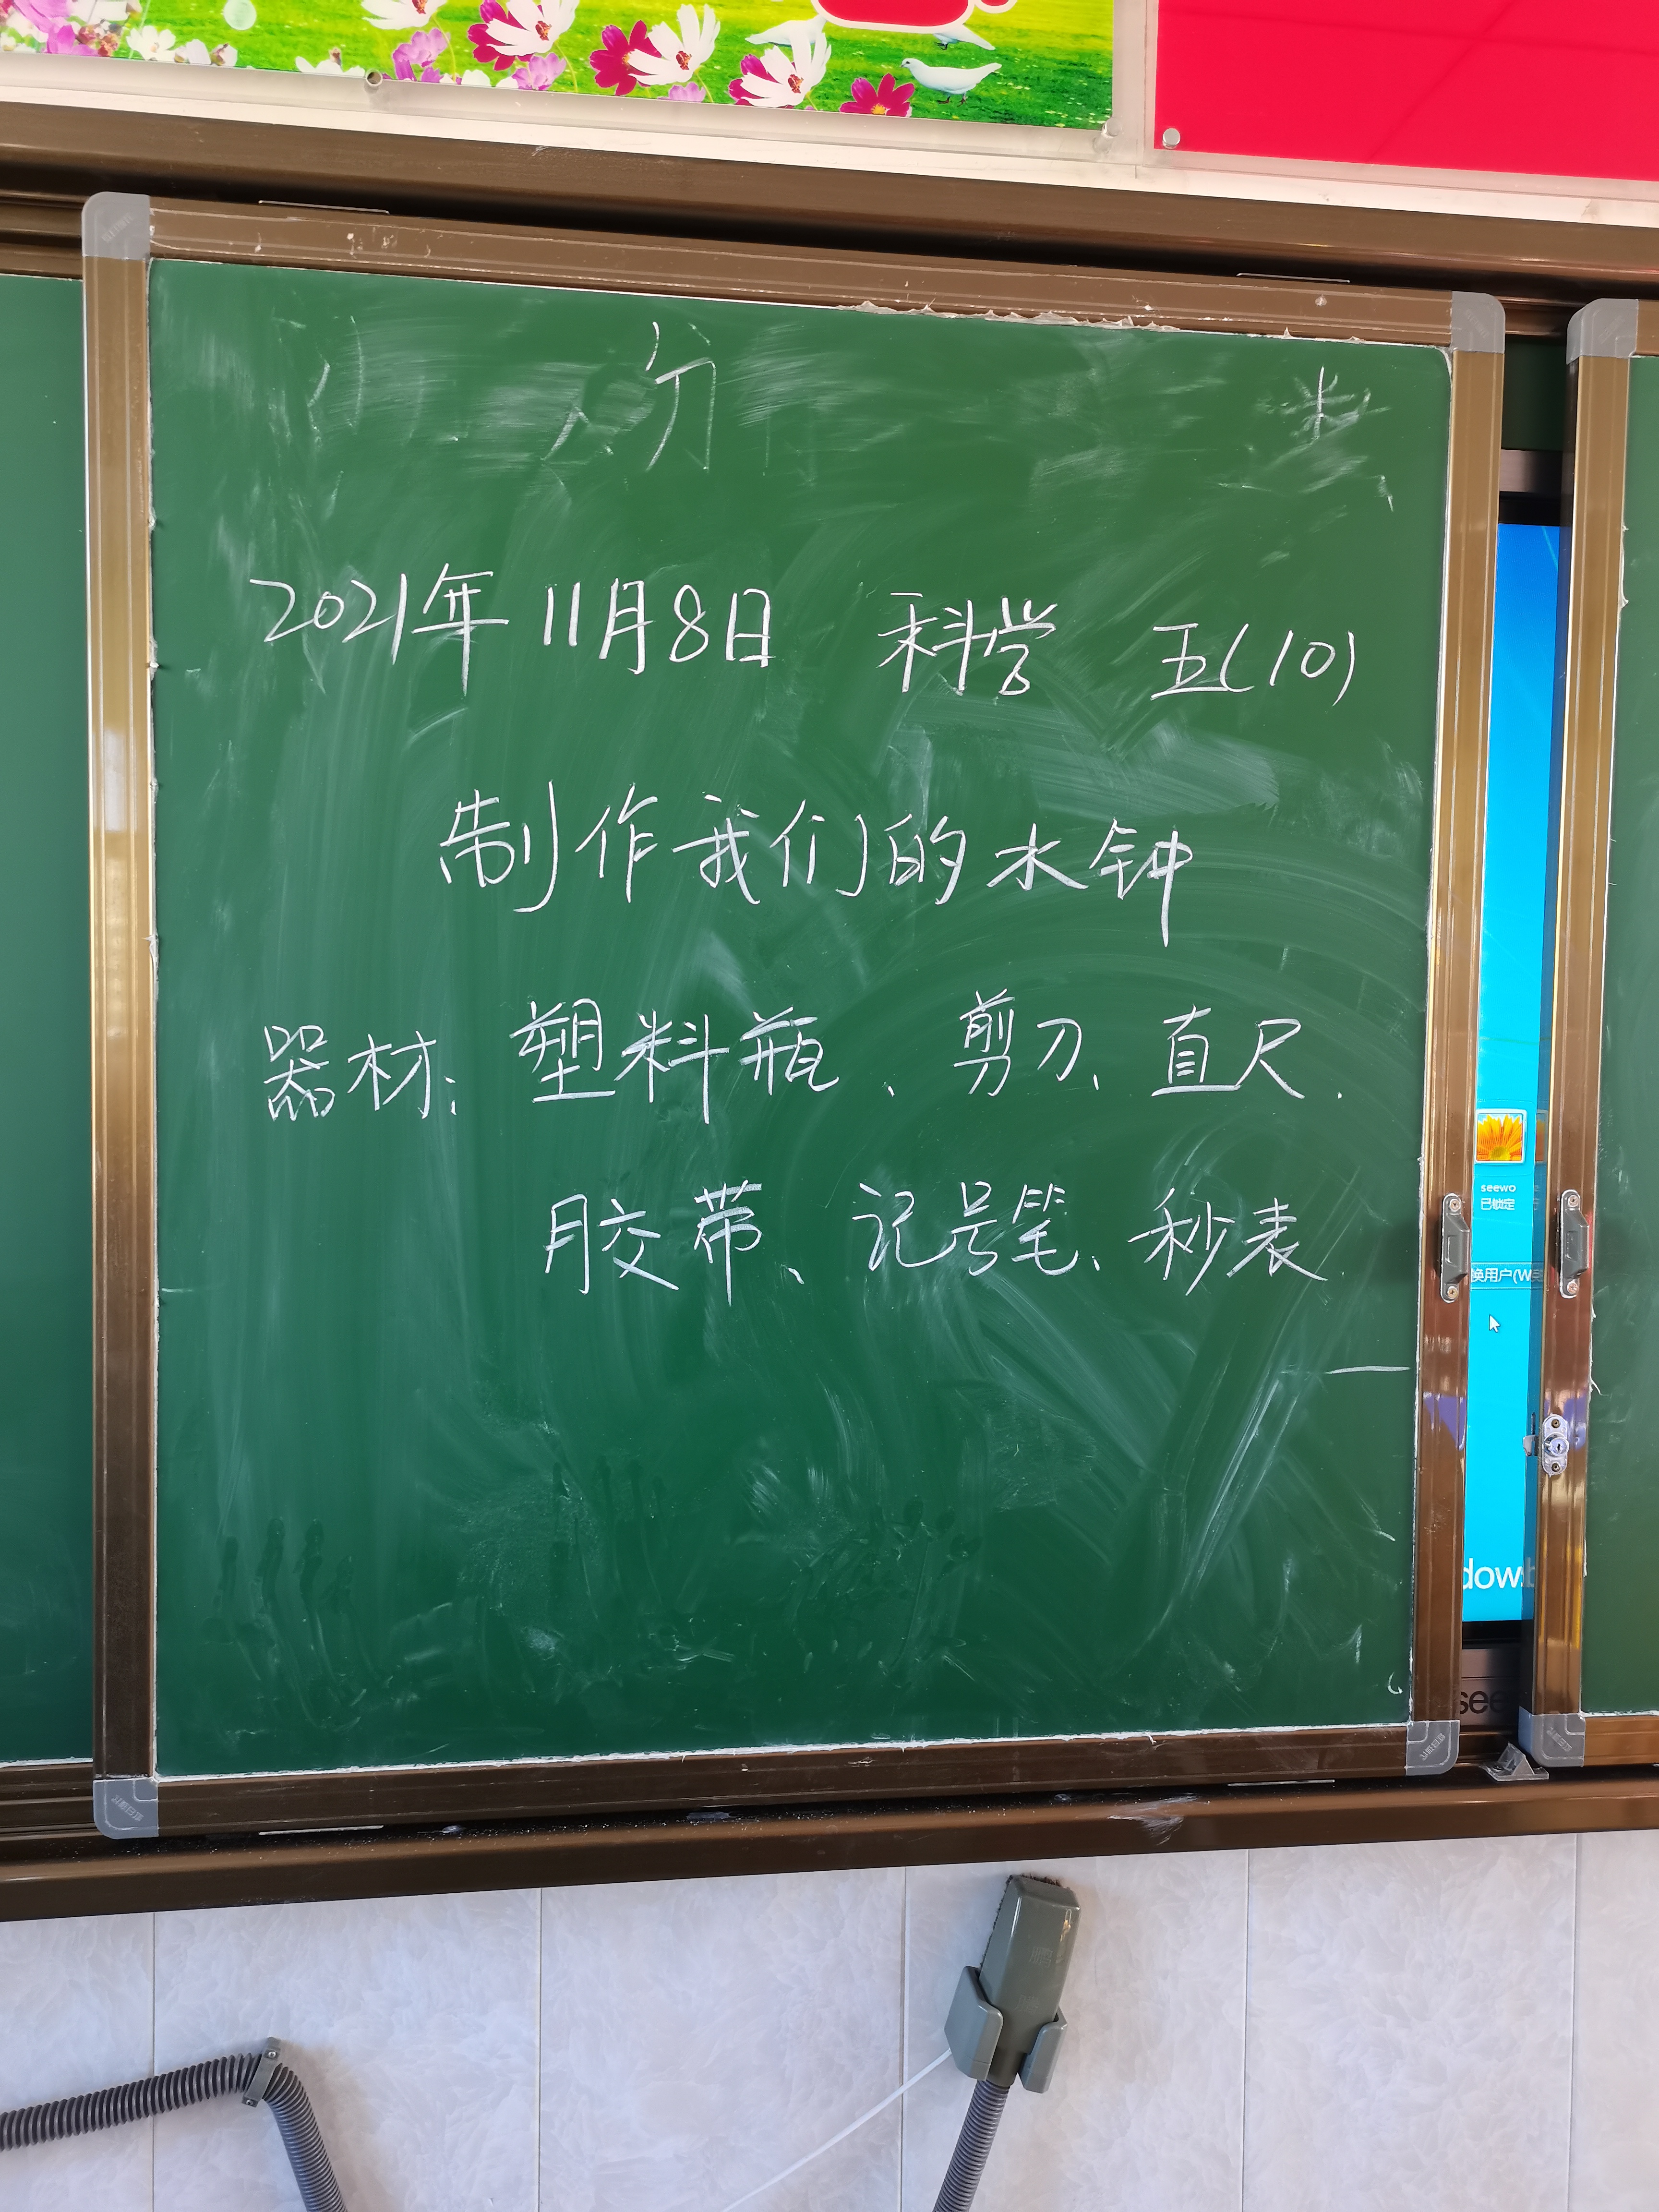 2021年11月8日 科学 五(10)
制作我们的水钟
器材：塑料瓶、剪刀、直尺、
胶带、记号笔、秒表.
seewo
已锁定
换用户(W
dows
see